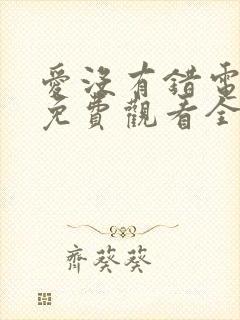 愛沒有錯電
免費觀看全
齊葵葵